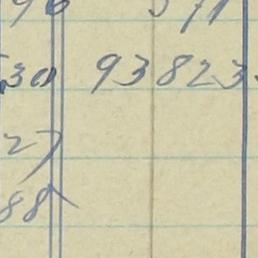 96 571
30 93823
27
88